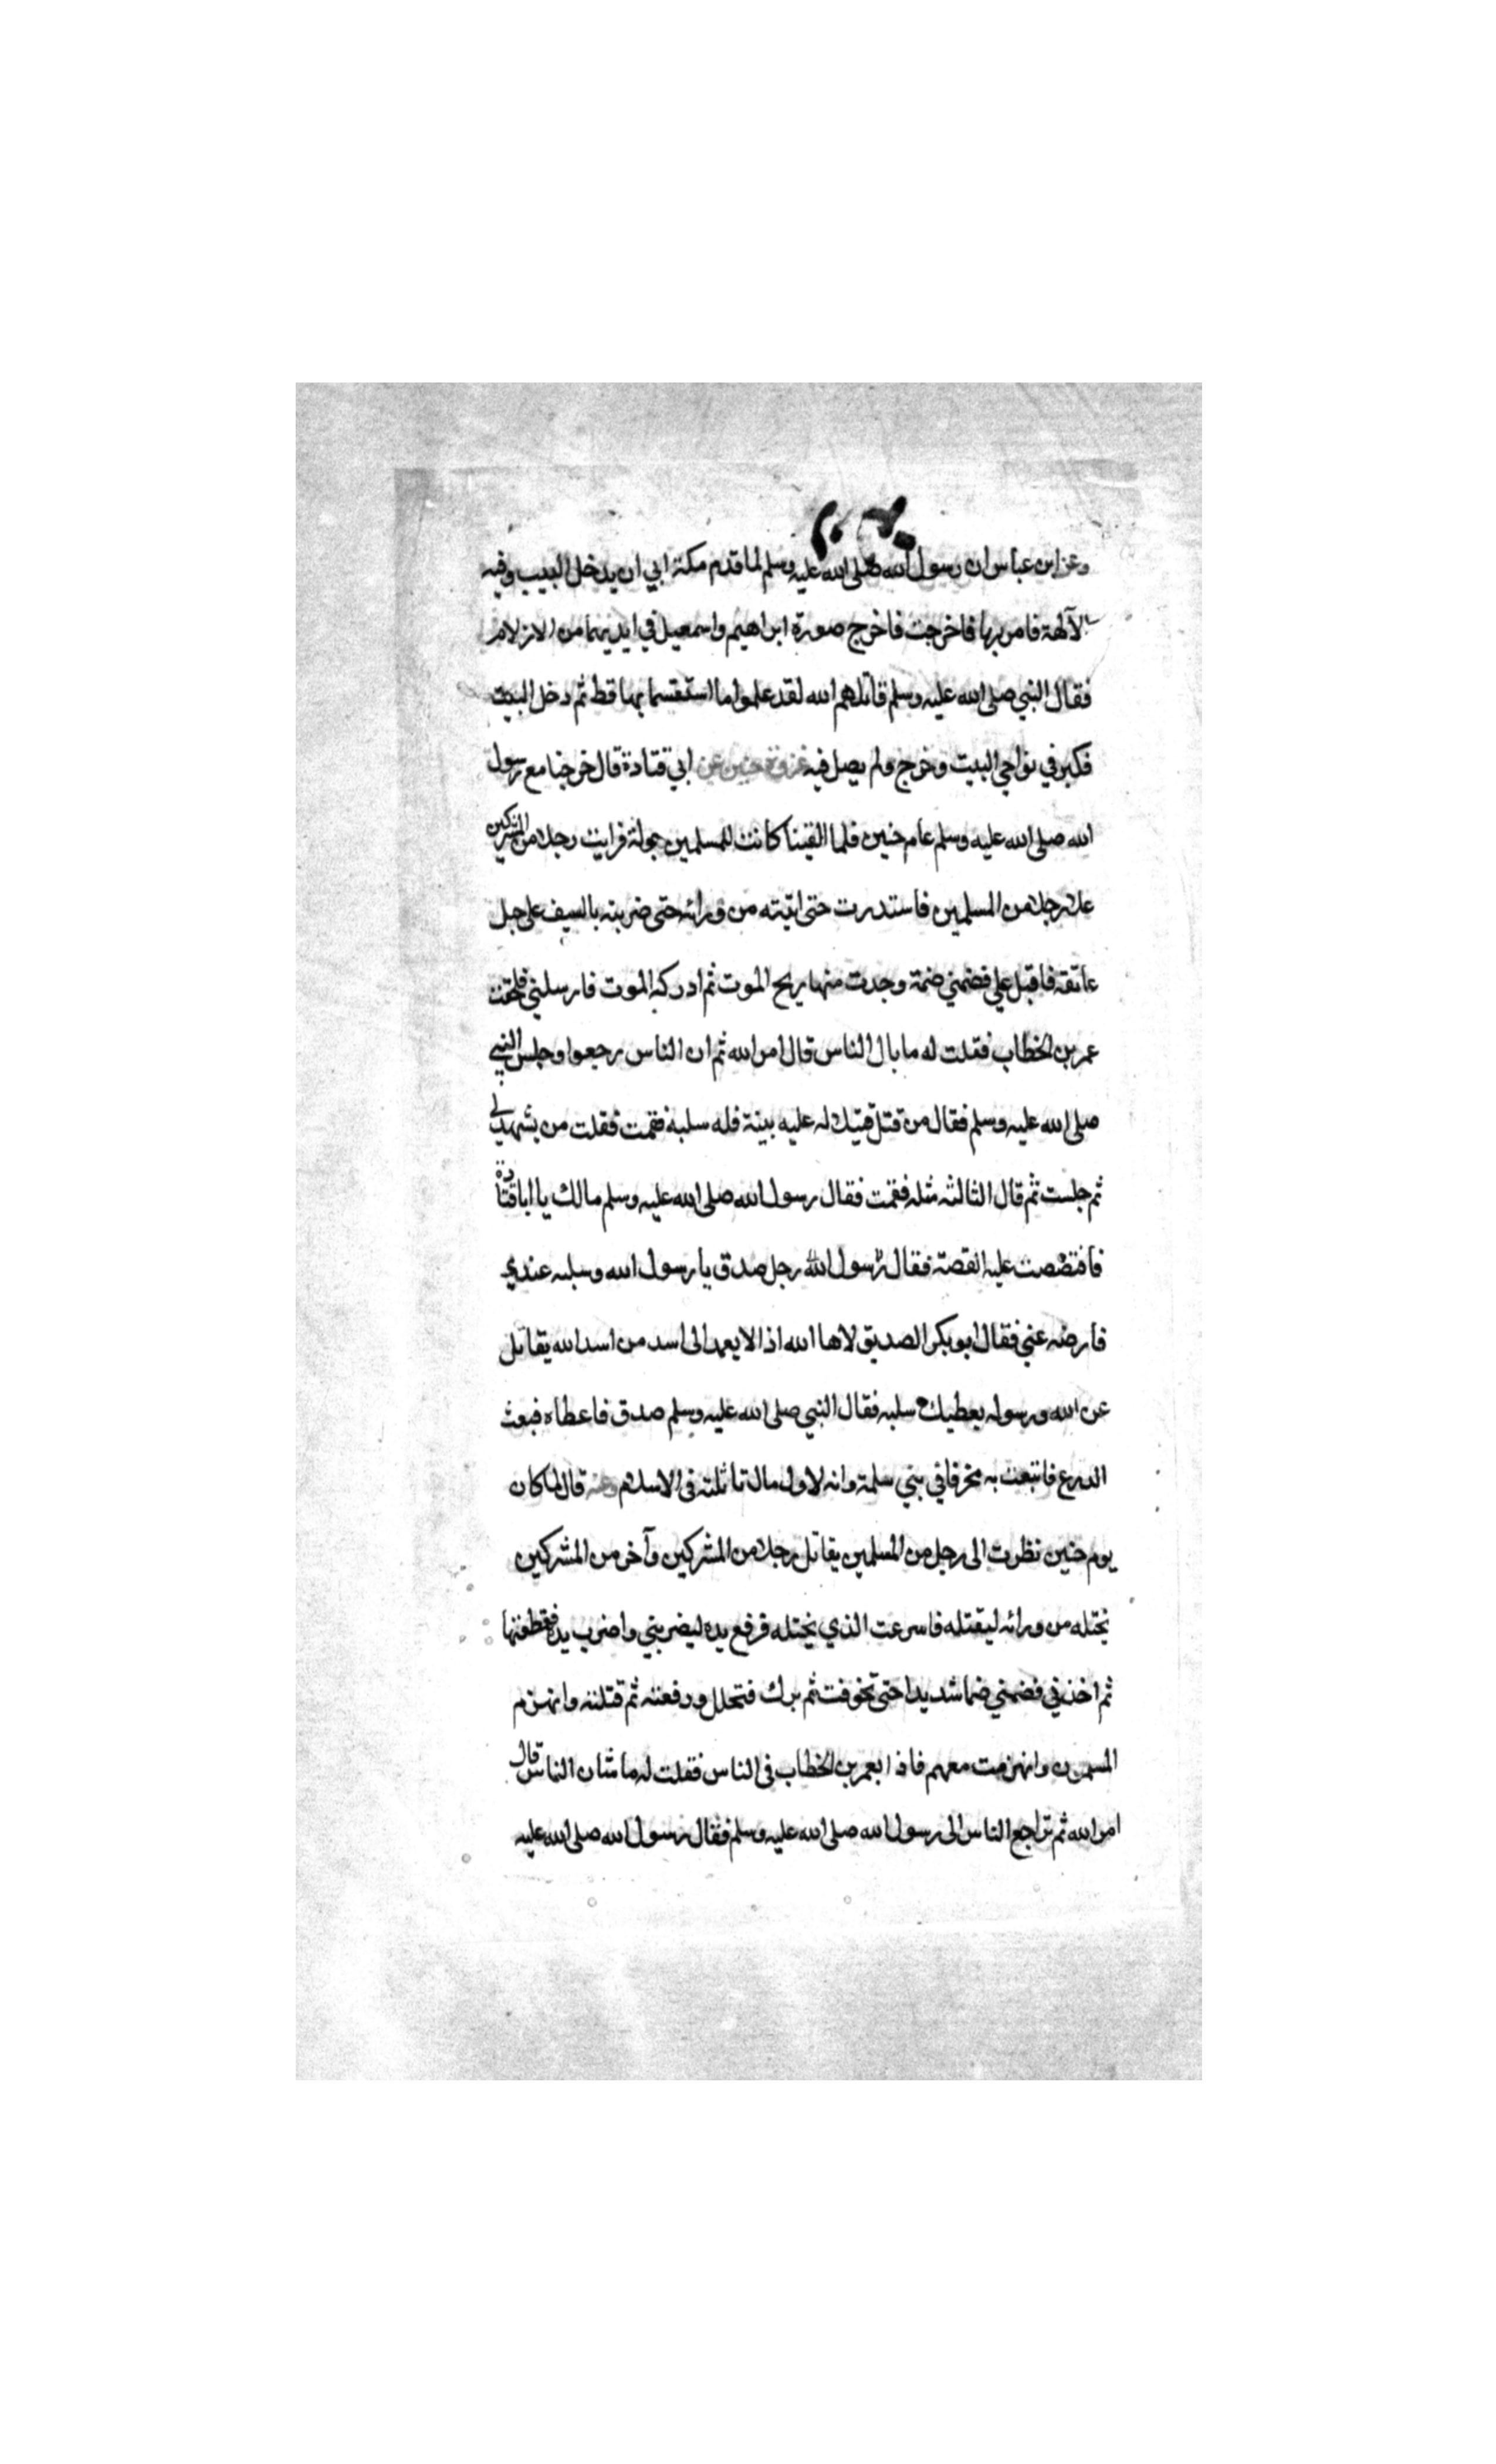 وعن ابن عباس ان رسول الله صلى الله عليه وسلم لما قدم مكة ابي ان يدخل البيت وفيه
الآلهة فامر بها فاخرجت فاخرج صورة ابراهيم واسمعيل في ايديهما من الازلام
فقال النبي صلى الله عليه وسلم قاتلهم الله لقد علموا ما استقسما بها قط ثم دخل البيت
فكبر في نواحي البيت وخرج ولم يصل فيه غزوة حنين عن ابي قتادة قال خرجنا مع رسول
الله صلى الله عليه وسلم عام حنين فلما التقينا كانت للمسلمين جولة فرايت رجلا من المشركين
علا رجلا من المسلمين فاستدرت حتى اتيته من ورائه حتى ضربته بالسيف على حبل
عاتقه فاقبل علي فضمني ضمة وجدت منها ريح الموت ثم ادركه الموت فارسلني فلحقت
عمر بن الخطاب فقلت له ما بال الناس قال امر الله ثم ان الناس رجعوا وجلس النبي
صلى الله عليه وسلم فقال من قتل قتيلا له عليه بينة فله سلبه فقمت فقلت من يشهد لي
ثم جلست ثم قال الثالثه مثله فقمت فقال رسول الله صلى الله عليه وسلم مالك يا ابا قتادة
فاقتصصت عليه القصة فقال رسول الله رجل صدق يا رسول الله وسلبه عندي
فارضه عني فقال ابو بكر الصديق لاها الله اذا لا يعمد الى اسد من اسد الله يقاتل
عن الله ورسوله يعطيك سلبه فقال النبي صلى الله عليه وسلم صدق فاعطاه فبعت
الدرع فابتعت به مخرفا في بني سلمة وانه لاول مال تاثلته في الاسلام وعنه قال لما كان
يوم حنين نظرت الى رجل من المسلمين يقاتل رجلا من المشركين وآخر من المشركين
يختله من ورائه ليقتله فاسرعت الذي يختله فرفع يده ليضربني واضرب يده فقطعتها
ثم اخذني فضمني ضما شديدا حتى تخوفت ثم برك فتحلل ودفعته ثم قتلته وانهزم
المسلمون وانهزمت معهم فاذا بعمر بن الخطاب في الناس فقلت له ما شان الناس قال
امر الله ثم تراجع الناس الى رسول الله صلى الله عليه وسلم فقال رسول الله صلى الله عليه